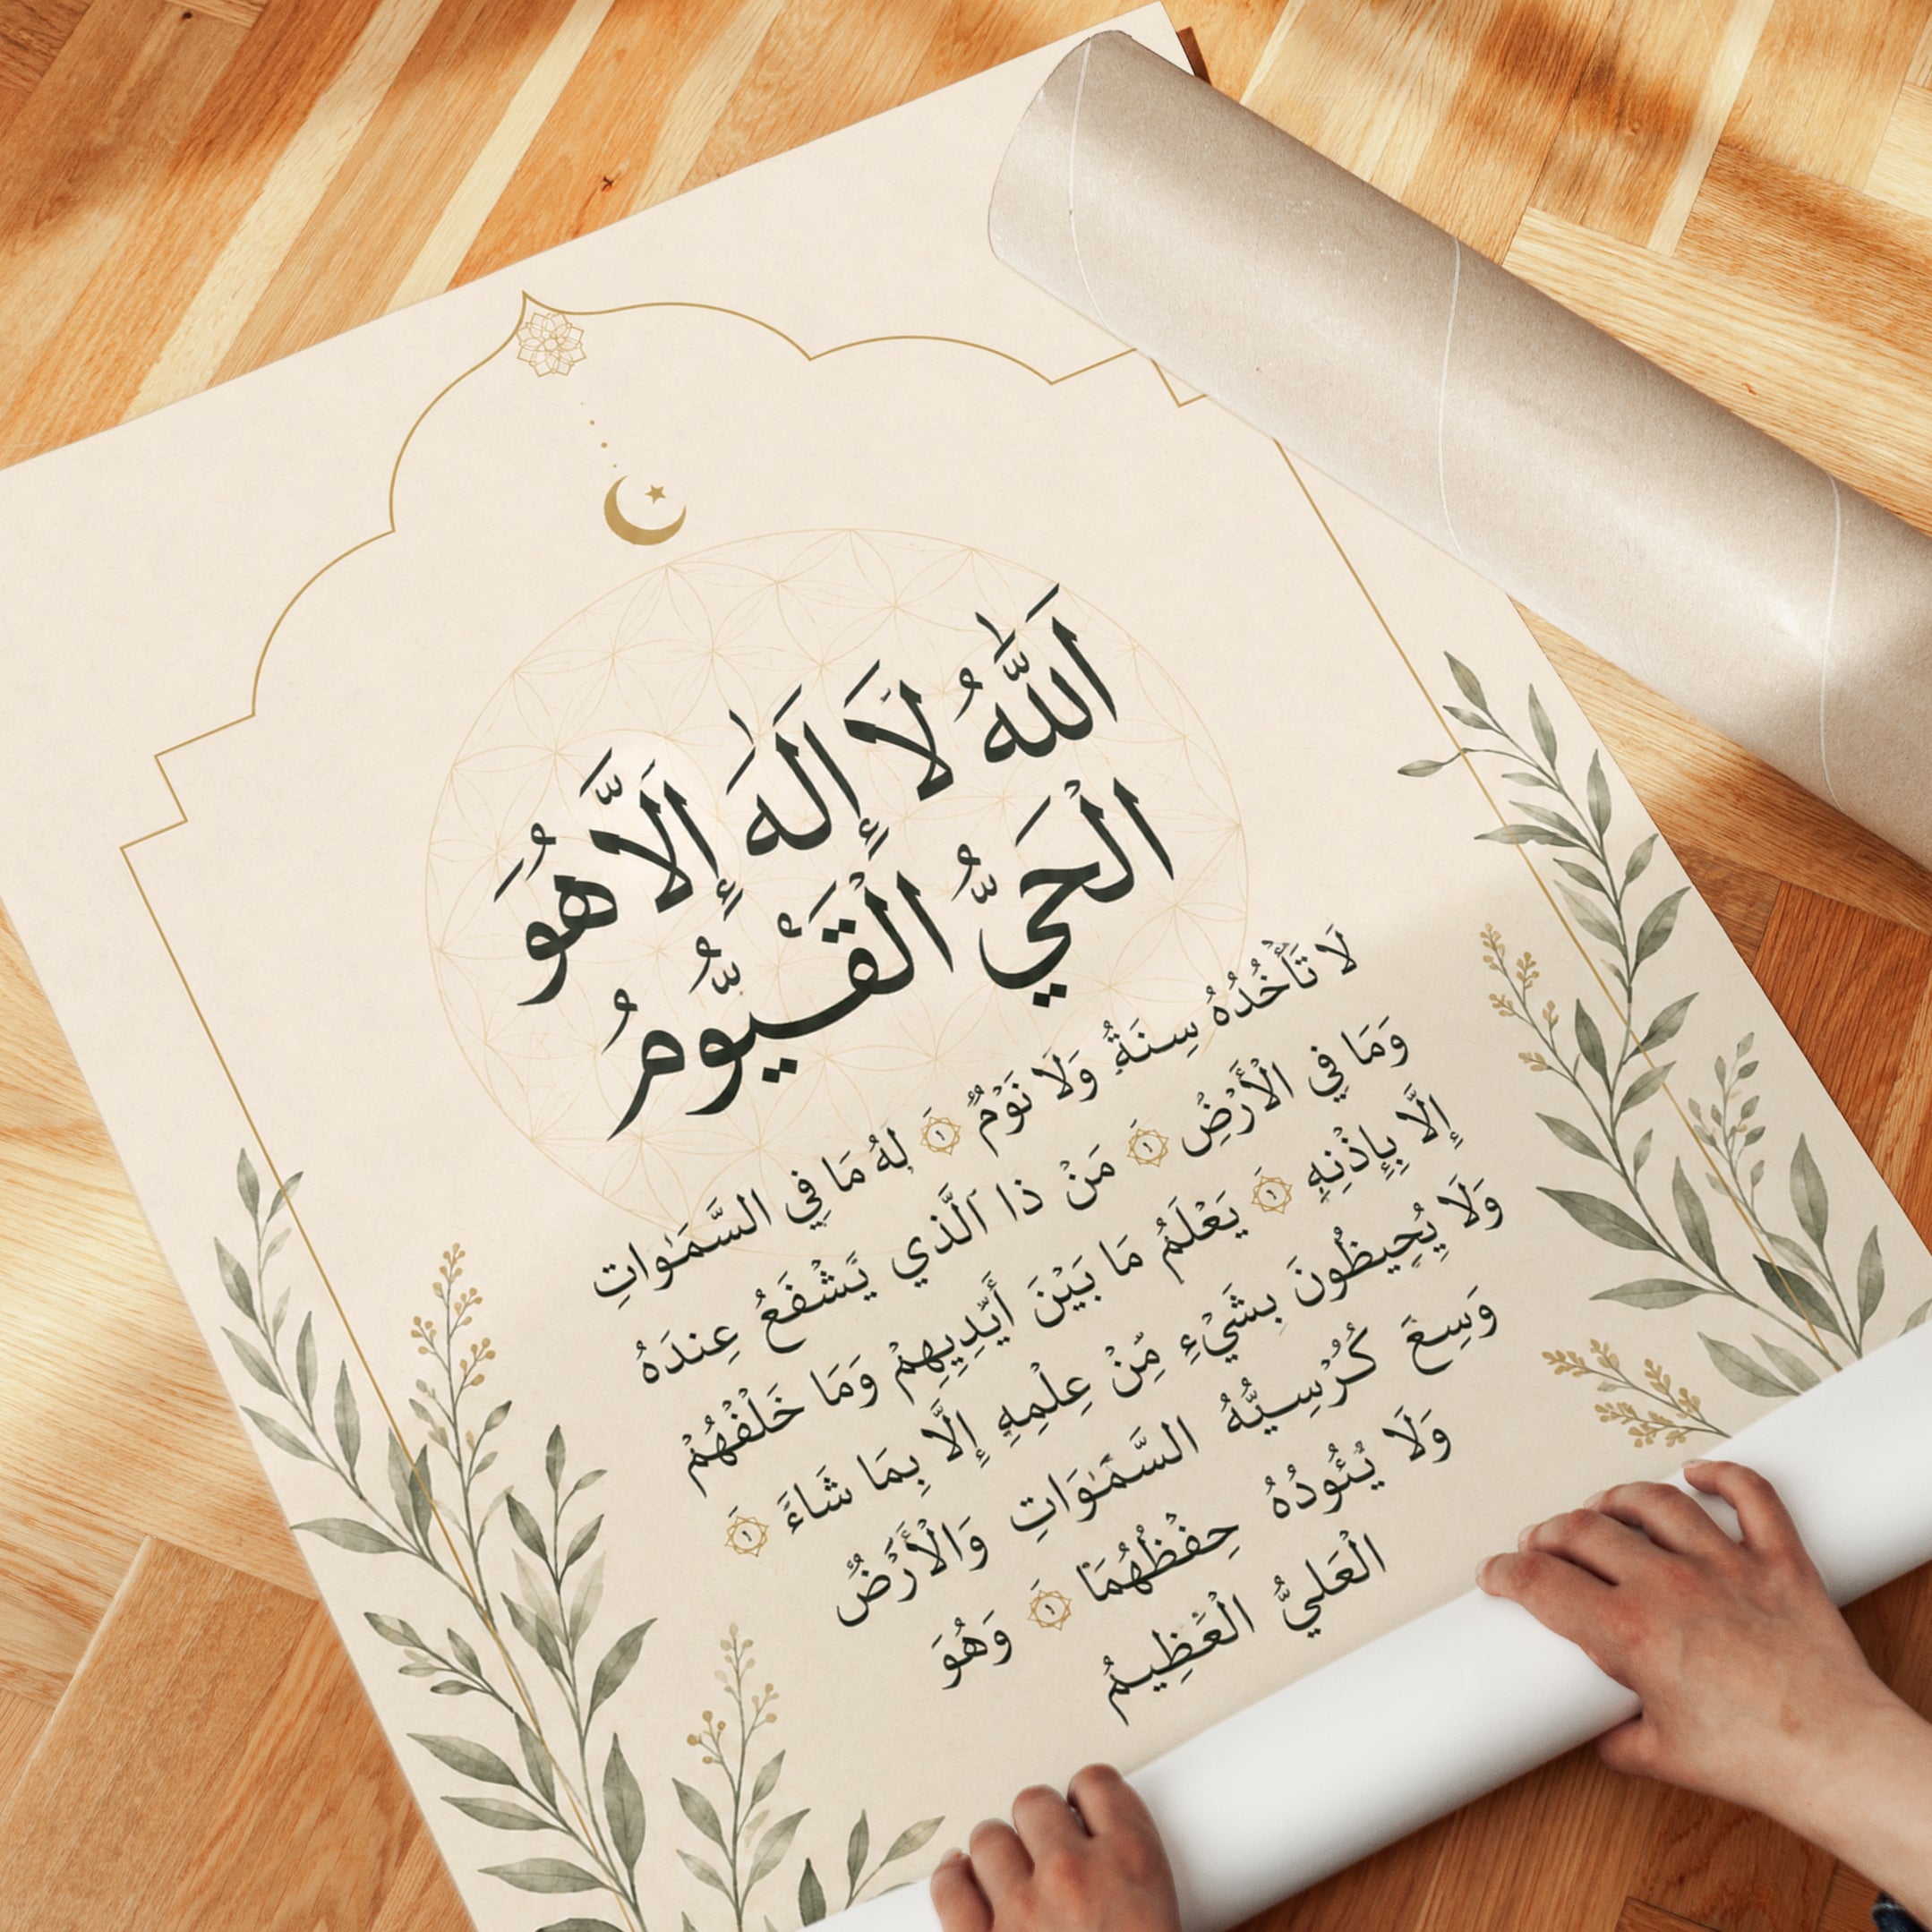 اللَّهُ لَا إِلَهَ إِلَّا هُوَ
الْحَيُّ الْقَيُّومُ
لَا تَأْخُذُهُ سِنَةٌ وَلَا نَوْمٌ ۝١ لَهُ مَا فِي السَّمَوَاتِ
وَمَا فِي الْأَرْضِ ۝١ مَنْ ذَا الَّذِي يَشْفَعُ عِندَهُ
إِلَّا بِإِذْنِهِ ۝١ يَعْلَمُ مَا بَيْنَ أَيْدِيهِمْ وَمَا خَلْفَهُمْ
وَلَا يُحِيطُونَ بِشَيْءٍ مِّنْ عِلْمِهِ إِلَّا بِمَا شَاءَ ۝١
وَسِعَ كُرْسِيُّهُ السَّمَوَاتِ وَالْأَرْضَ
وَلَا يَئُودُهُ حِفْظُهُمَا ۝١ وَهُوَ
الْعَلِيُّ الْعَظِيمُ